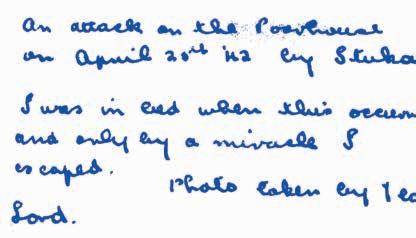 An attack on the Poorhouse
on April 20th '42 by Stuka
I was in bed when this occurr
and only by a miracle I
escaped.
Photo taken by
Lord.